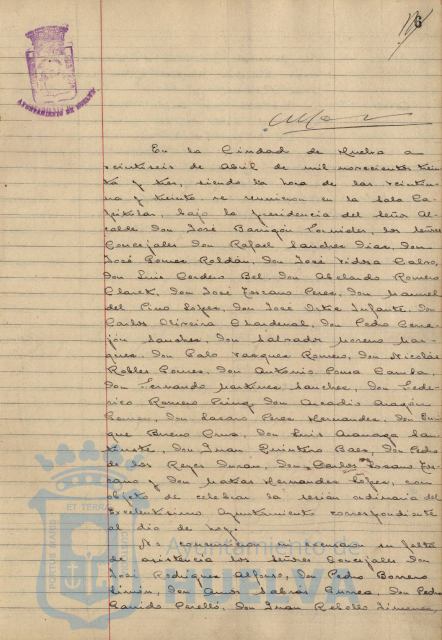 6
AYUNTAMIENTO DE HUELVA
En la Ciudad de Huelva a
veintiseis de Abril de mil novecientos trein
ta y tres, siendo la hora de las veintiu
na y treinta se reunieron en la Sala Ca-
pitular, bajo la presidencia del Señor Al-
calde don José Barrigón Fornieles, los señores
Concejales don Rafael Sanchez Diaz, don
José Gomez Roldán, don José Tidora Calvo,
don Luis Cordero Bel, don Abelardo Romero
Claret, don José Toscano Perez, don Manuel
del Pino Lopez, don José Ortiz Infante, don
Carlos Oliveira Chardenal, don Pedro Cere-
jón Sanchez, don Salvador Moreno Mar-
quez, don Pablo Vazquez Romero, don Nicolás
Robles Gomez, don Antonio Ponce
don Fernando Martinez Sanchez, don Fede-
rico Romero don Arcadio Aragón
Gomez, don Lazaro Perez Hernandez, don Enri
que Bueno Cruz, don Luis
don Juan Quintero Baez, don Pedro
de los Reyes Duran, don Carlos Lozano
y don Matias Hernandez Lopez, con
objeto de celebrar la sesión ordinaria del
Excelentisimo Ayuntamiento correspondiente
al dia de hoy.
No concurrieron ni excusan su falta
de asistencia los señores Concejales don
José Rodriguez Alfonso, don Pedro Borrero
Limón, don Amos Sabras Gurrea, don Pedro
Garrido Perelló, don Juan Rebollo Jimenez,
PORTUS MARIS ET TERRAE CUSTODIA
Ayuntamiento de
HUELVA